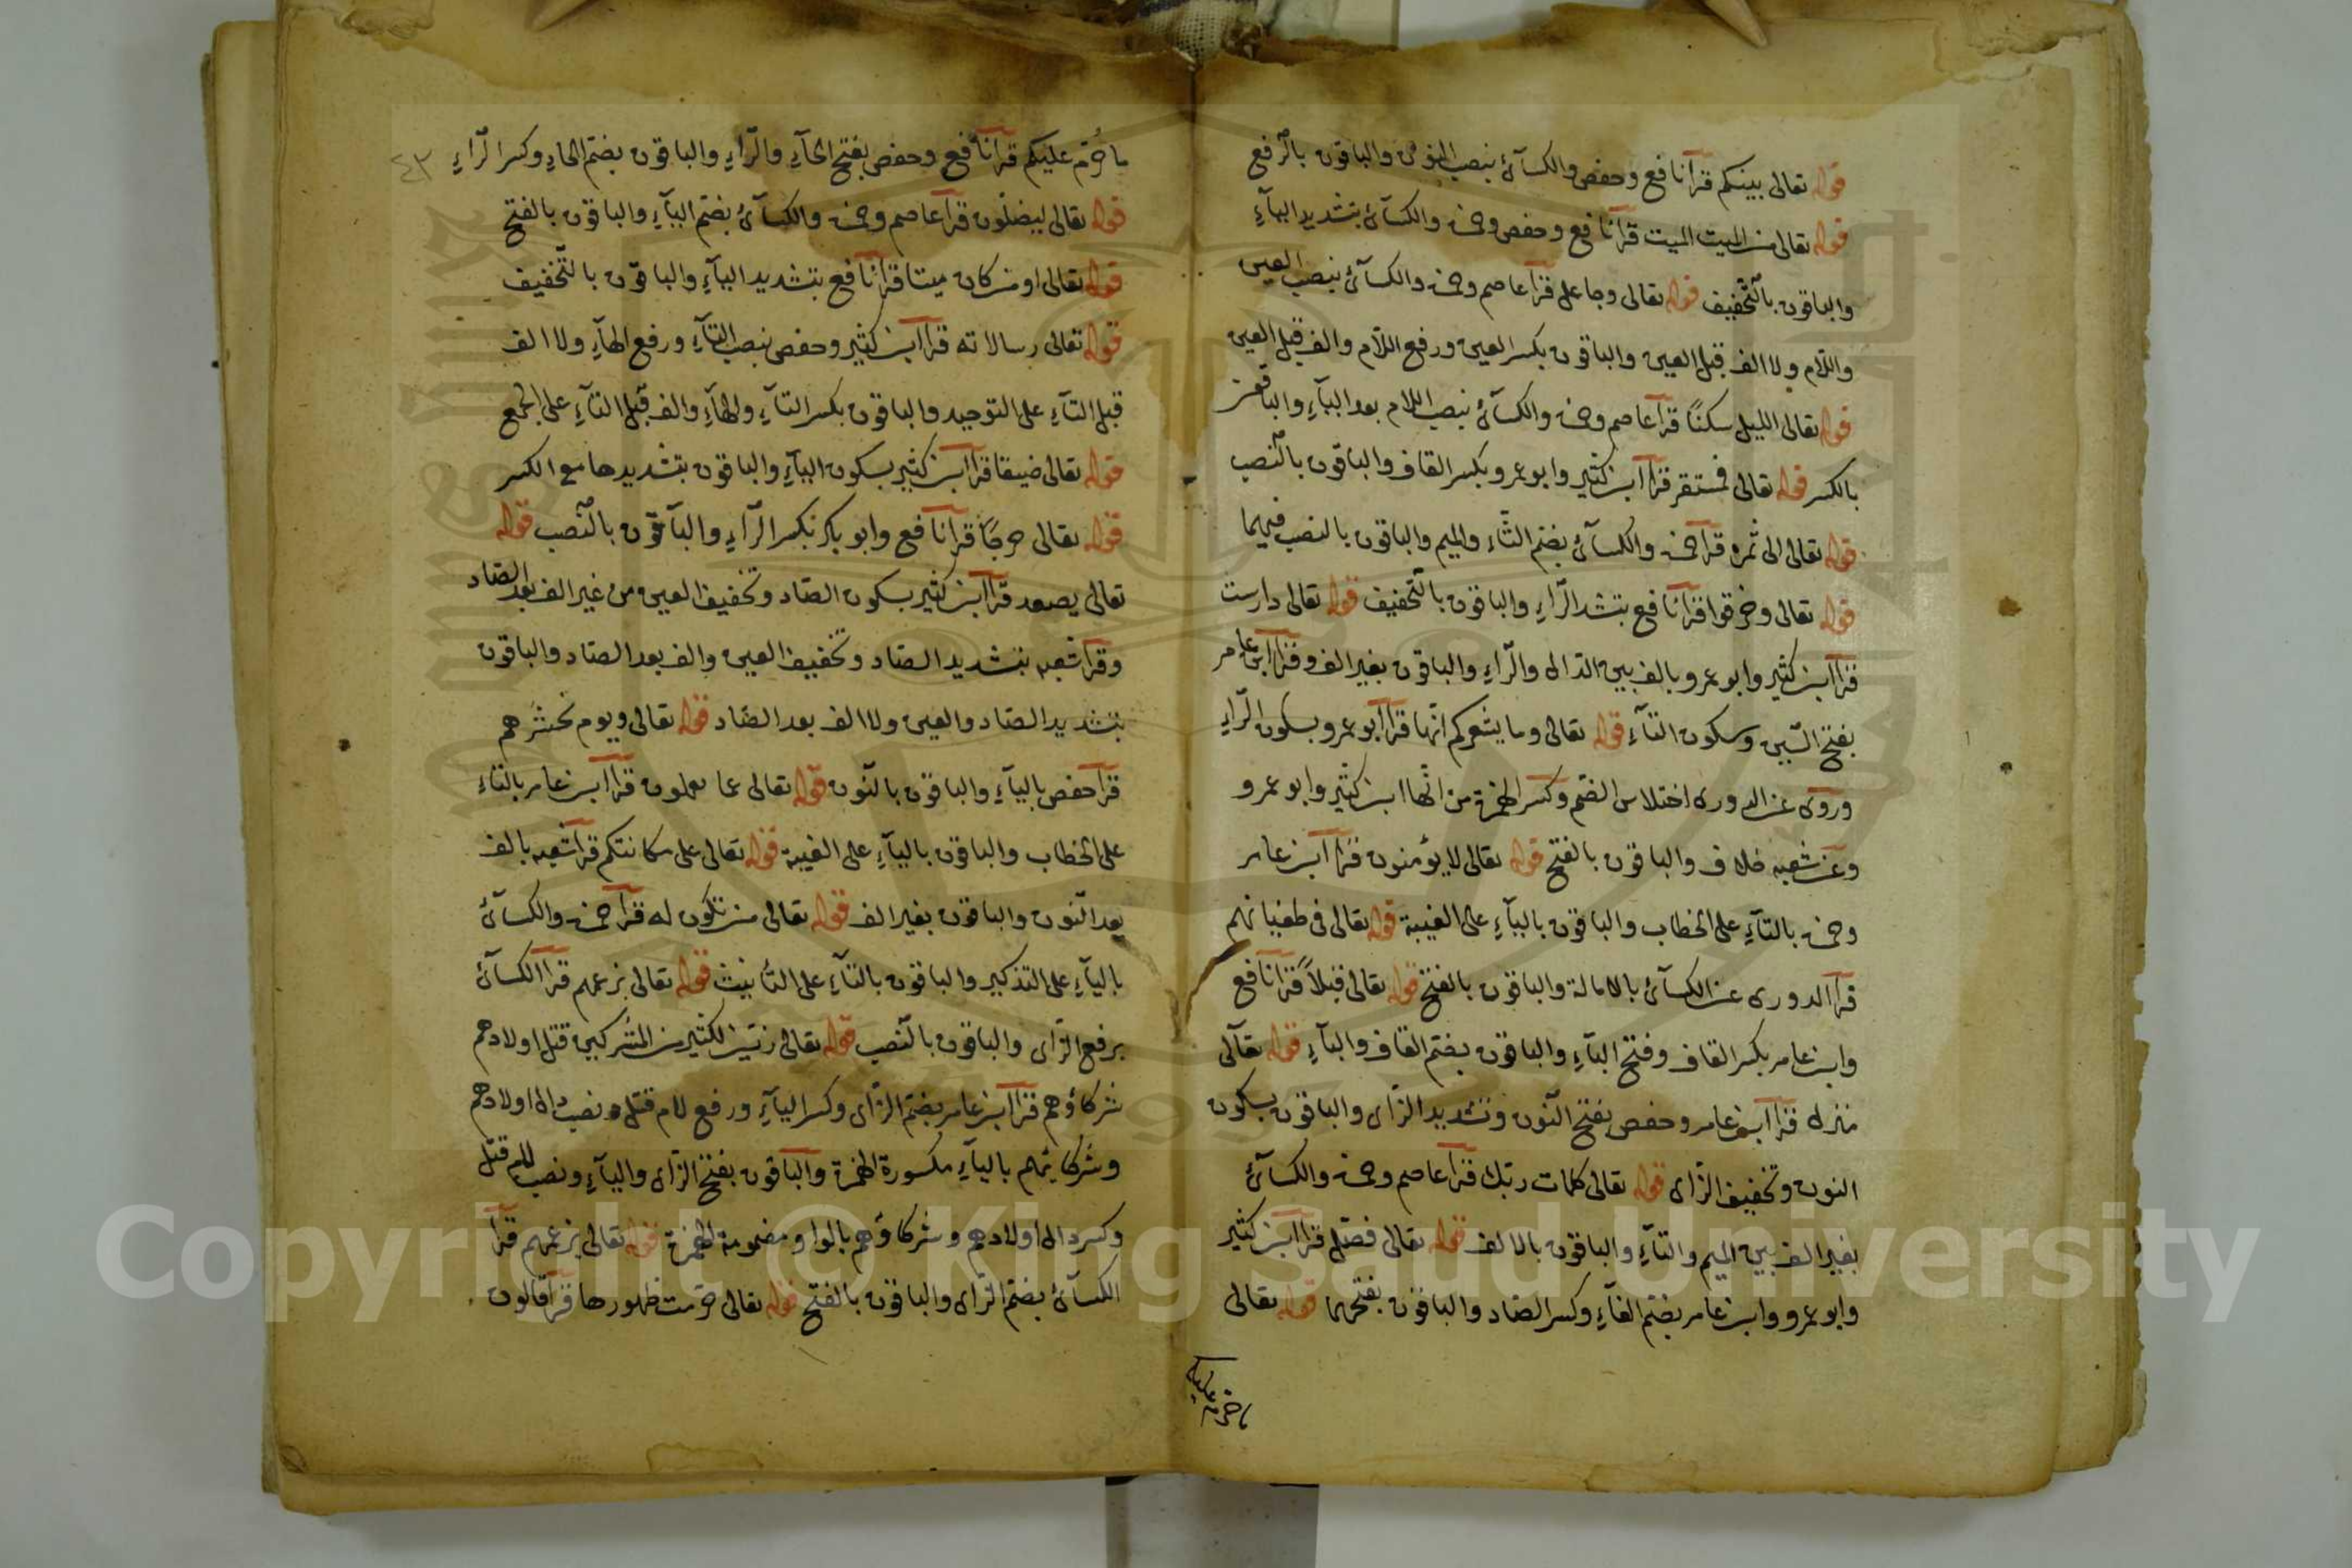 قوله تعالى بينكم قرأ نافع وحفص والكسآئ بنصب النون والباقون بالرفع
قوله تعالى من الميت الميت قرأ نافع وحفص وحمزة والكسآئ بتشديد اليآءِ
والباقون بالتخفيف قوله تعالى وجاعل قرأ عاصم وحمزة والكسآئ بنصب العين
واللام ولا الف قبل العين والباقون بكسر العين ورفع اللام والف قبل العين
قوله تعالى الليل سكنًا قرأ عاصم وحمزة والكسآئ بنصب اللام بعد اليآءِ والباقون
بالكسر قوله تعالى فمستقر قرأ ابن كثير وابو عمرو بكسر القاف والباقون بالنصب
قوله تعالى الى ثمره قرأ حمزة والكسآئ بضم الثاء والميم والباقون بالنصب فيهما
قوله تعالى وخرقوا قرأ نافع بتشد الراءِ والباقون بالتخفيف قوله تعالى دارست
قرأ ابن كثير وابو عمرو بالف بين الدال والراءِ والباقون بغير الف وقرأ ابن عامر
بفتح السين وسكون التآءِ قوله تعالى وما يشعركم انها قرأ ابو عمرو بسكون الراءِ
وروى عن الدورى اختلاس الضم وكسر الهمزة من انها ابن كثير وابو عمرو
وعن شعبه خلاف والباقون بالفتح قوله تعالى لا يؤمنون قرأ ابن عامر
وحمزة بالتآءِ على الخطاب والباقون باليآءِ على الغيبة قوله تعالى فى طغيانهم
قرأ الدورى عن الكسآئ بالامالة والباقون بالفتح قوله تعالى قبلاً قرأ نافع
وابن عامر بكسر القاف وفتح البآءِ والباقون بضم القاف والبآءِ قوله تعالى
منزله قرأ ابن عامر وحفص بفتح النون وتشديد الزاى والباقون بسكون
النون وتخفيف الزاى قوله تعالى كلمات ربك قرأ عاصم وحمزة والكسآئ
بغير الف بين الميم والتآءِ والباقون بالالف قوله تعالى فصّل قرأ ابن كثير
وابو عمرو وابن عامر بضم الفآءِ وكسر الصاد والباقون بفتحهما قوله تعالى
ما حرم عليكم
ما حُرّم عليكم قرأ نافع وحفص بفتح الحآءِ والرّاءِ والباقون بضم الحاءِ وكسر الراءِ
٤٣
قوله تعالى ليضلون قرأ عاصم وحمزة والكسآئ بضم اليآءِ والباقون بالفتح
قوله تعالى او من كان ميتا قرأ نافع بتشديد اليآءِ والباقون بالتخفيف
قوله تعالى رسالاته قرأ ابن كثير وحفص بنصب التآءِ ورفع الهآءِ ولا الف
قبل التآءِ على التوحيد والباقون بكسر التآءِ والهآءِ والف قبل التآءِ على الجمع
قوله تعالى ضيقا قرأ ابن كثير بسكون اليآءِ والباقون بتشديدها مع الكسر
قوله تعالى حرجًا قرأ نافع وابو بكر بكسر الرّآءِ والباقون بالنصب قوله
تعالى يصعد قرأ ابن كثير بسكون الصاد وتخفيف العين من غير الف بعد الصاد
وقرأ شعبه بتشديد الصاد وتخفيف العين والف بعد الصاد والباقون
بتشديد الصاد والعين ولا الف بعد الصاد قوله تعالى ويوم نحشرهم
قرأ حفص باليآءِ والباقون بالنون قوله تعالى عما يعملون قرأ ابن عامر بالتاء
على الخطاب والباقون باليآءِ على الغيبة قوله تعالى على مكانتكم قرأ شعبه بالف
بعد النون والباقون بغير الف قوله تعالى من تكون له قرأ حمزة والكسآئ
باليآءِ على التذكير والباقون بالتآءِ على التأنيث قوله تعالى بزعمهم قرأ الكسآئ
برفع الزاى والباقون بالنصب قوله تعالى زين لكثير من المشركين قتل اولادهم
شركاؤهم قرأ ابن عامر بضم الزاى وكسر اليآءِ ورفع لام قتل ونصب دال اولادهم
وشركايهم باليآءِ مكسورة الهمزة والباقون بفتح الزاى واليآءِ ونصب لام قتل
وكسر دال اولادهم وشركاؤهم بالواو مضمومة الهمزة قوله تعالى بزعمهم قرأ
الكسآئ بضم الزاى والباقون بالفتح قوله تعالى حرّمت ظهورها قرأ قالون
Copyright © King Saud University